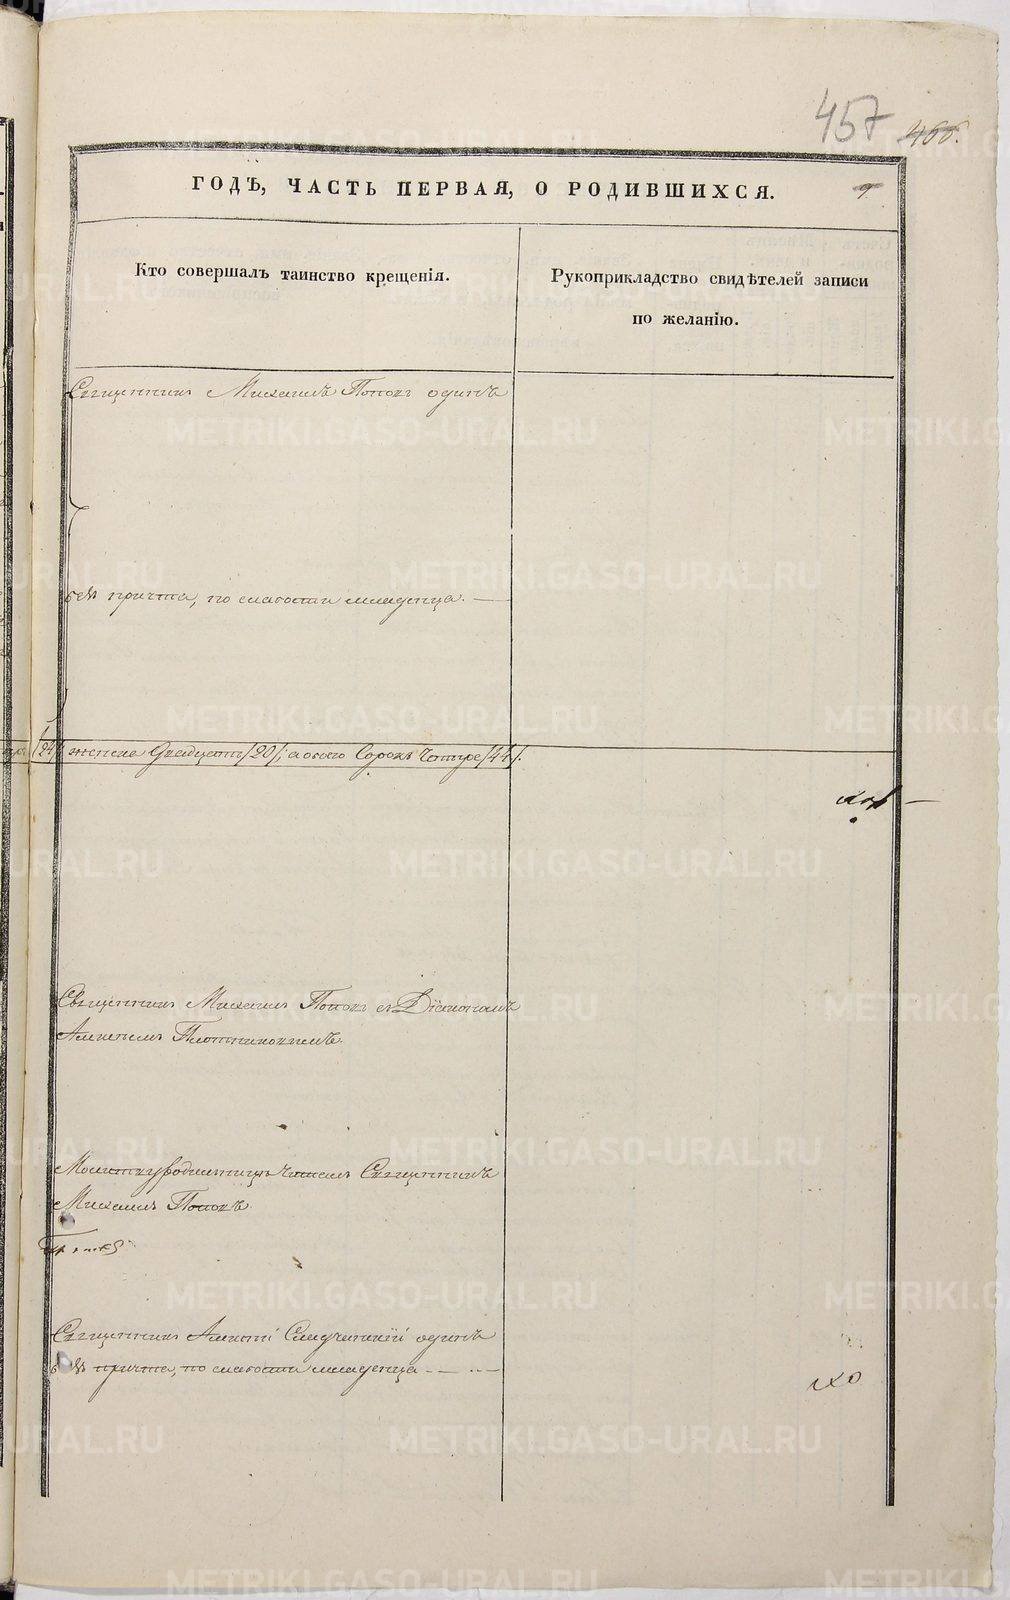 457 466.
ГОДЪ, ЧАСТЬ ПЕРВАЯ, О РОДИВШИХСЯ. 9
Кто совершалъ таинство крещенія.
Рукоприкладство свидѣтелей записи
по желанію.
Священникъ Михаилъ Поповъ одинъ
безъ причта, по слабости младенца. —
/24/ женска Двадцать /20/; а обоего Сорокъ Четыре /44/.
Священникъ Михаилъ Поповъ съ Діакономъ
Плотниковымъ.
Молитву родилницѣ читалъ Священникъ
Михаилъ Поповъ
Священникъ одинъ
безъ причта, по слабости младенца
METRIKI.GASO-URAL.RU